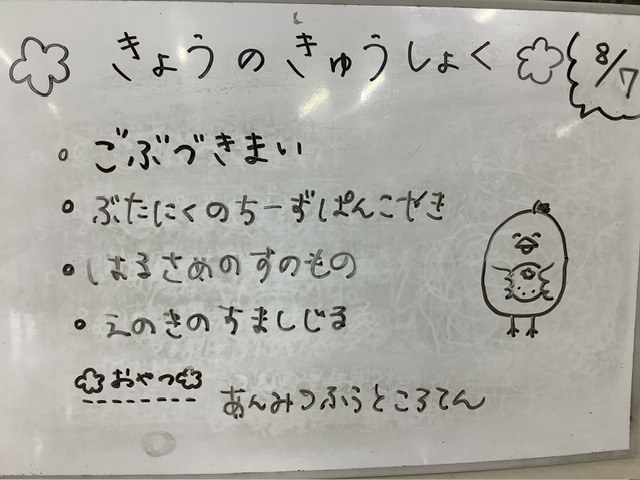 きょうのきゅうしょく
8/7
ごぶづきまい
ぶたにくのちーずぱんこやき
はるさめのすのもの
えのきのすましじる
おやつ
あんみつふうところてん